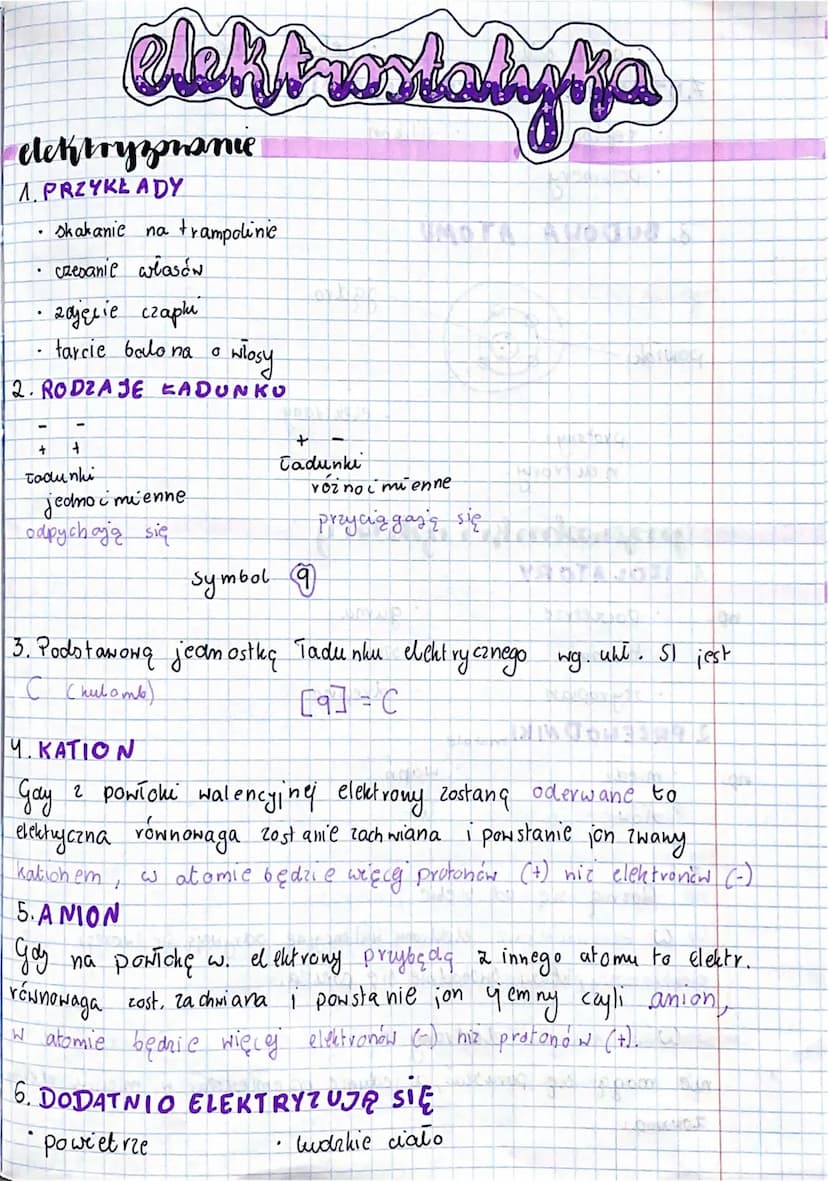 elektrostatyka
elektryzowanie
1. PRZYKŁADY
· skakanie na trampolinie
· czesanie włosów
· zdjęcie czapki
· tarcie balona o włosy
2. RODZAJE ŁADUNKU
- -
+ + + -
ładunki ładunki
jednoimienne różnoimienne
odpychają się przyciągają się
symbol q
3. Podstawową jednostką ładunku elektrycznego wg. ukł. SI jest
C (kulomb) [q] = C
4. KATION
Gdy z powłoki walencyjnej elektrony zostaną oderwane to
elektryczna równowaga zostanie zachwiana i powstanie jon zwany
kationem, w atomie będzie więcej protonów (+) niż elektronów (-)
5. ANION
Gdy na powłokę w. elektrony przybędą z innego atomu to elektr.
równowaga zost. zachwiana i powstanie jon ujemny czyli anion,
w atomie będzie więcej elektronów (-) niż protonów (+).
6. DODATNIO ELEKTRYZUJĄ SIĘ
· powietrze · ludzkie ciało